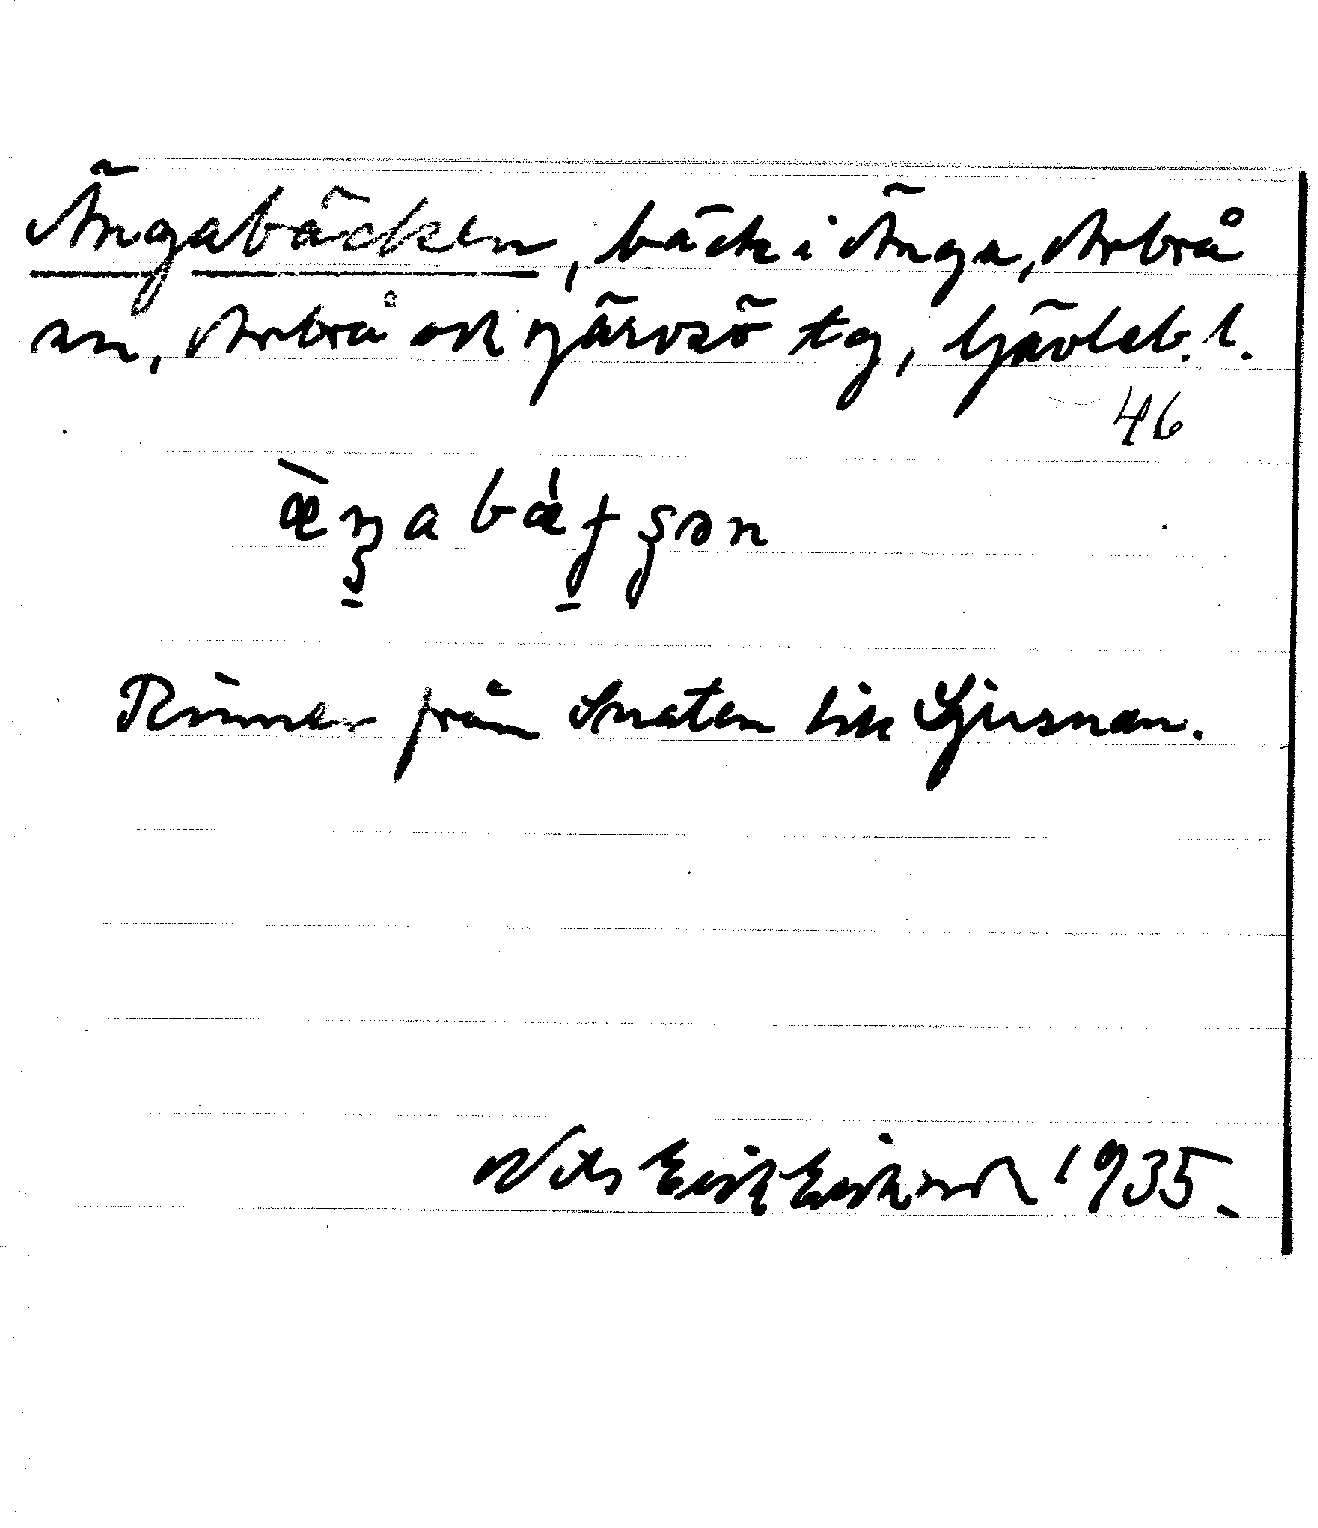 Ängabäcken, bäck i Änga, Arbrå
sn, Arbrå och Järvsö tg, Gävleb. l.
46
Rinner från Snaten till Ljusnan.
Nils Erik Eriksson 1935.